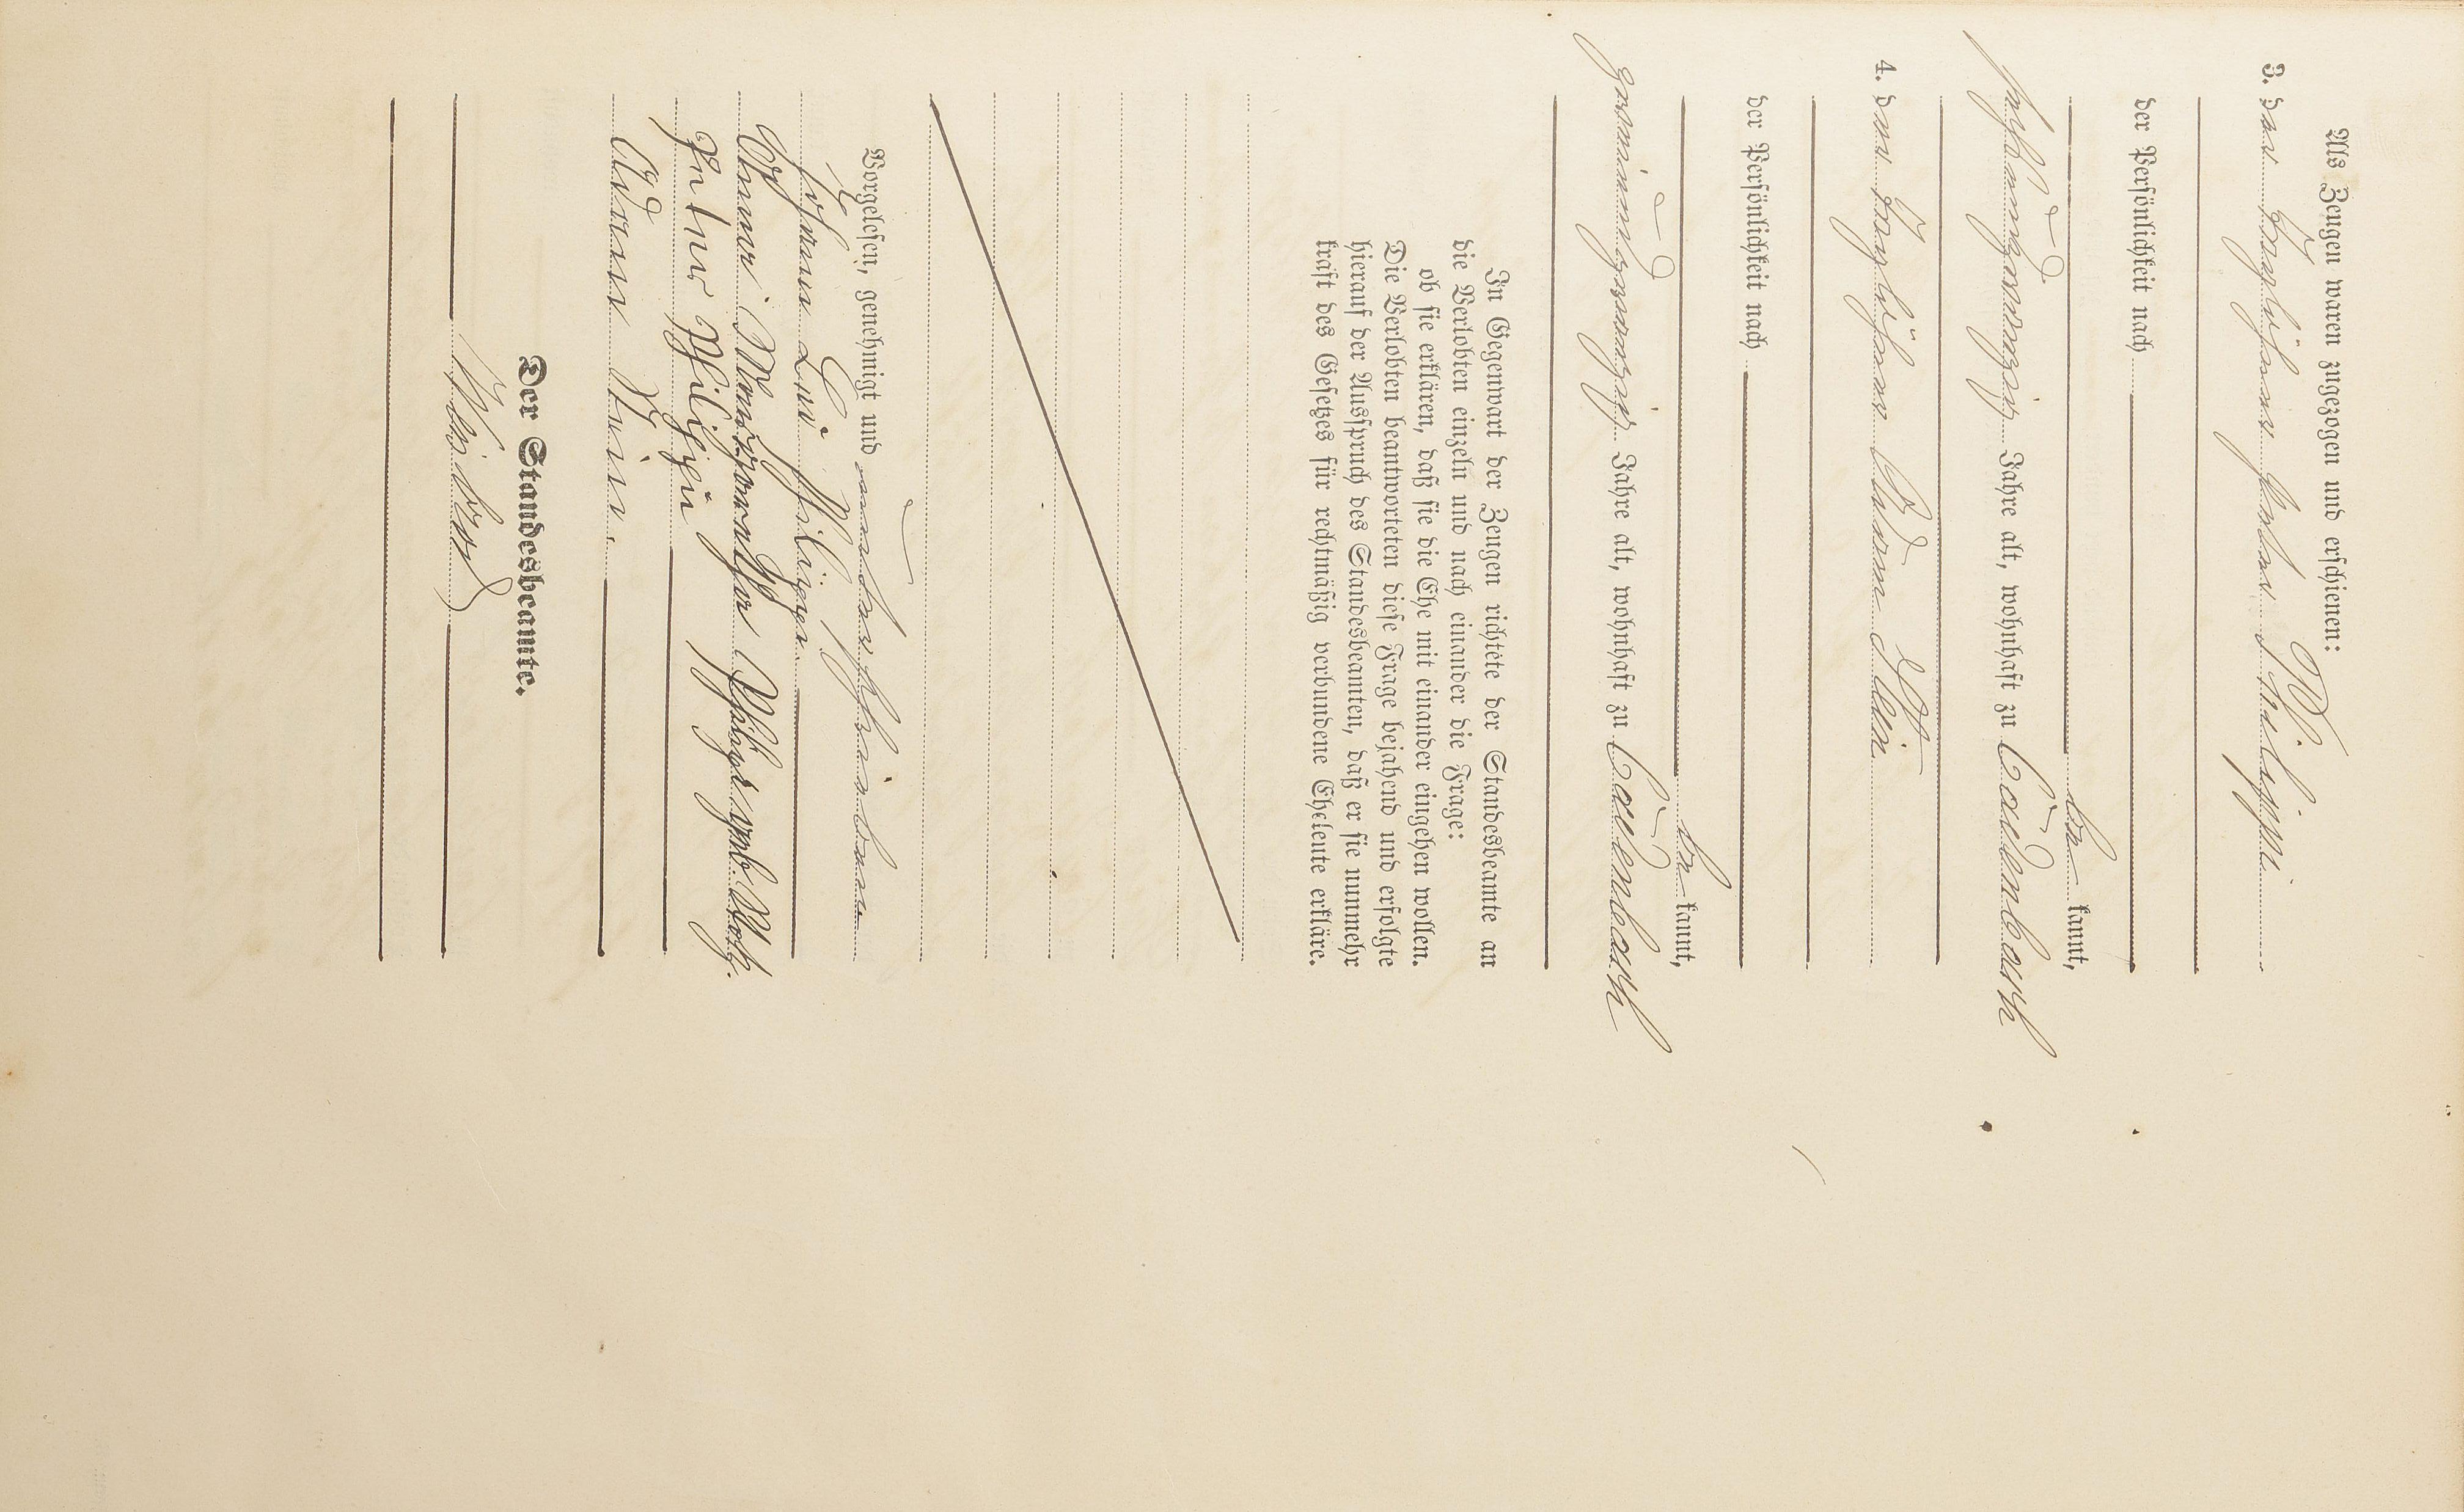 Als Zeugen waren zugezogen und erschienen:
3. der Taglöhner Peter Philippi
der Persönlichkeit nach
be kannt,
sechsundzwanzig Jahre alt, wohnhaft zu Cadenbach
4. der Taglöhner Adam Stein
der Persönlichkeit nach
be kannt,
Jahre alt, wohnhaft zu Cadenbach
In Gegenwart der Zeugen richtete der Standesbeamte an
die Verlobten einzeln und nach einander die Frage:
ob sie erklären, daß sie die Ehe mit einander eingehen wollen.
Die Verlobten beantworteten diese Frage bejahend und erfolgte
hierauf der Ausspruch des Standesbeamten, daß er sie nunmehr
kraft des Gesetzes für rechtmäßig verbundene Eheleute erkläre.
Vorgelesen, genehmigt und unterschrieben
Anna Margaretha geb.
Peter Philippi
Adam Stein.
Der Standesbeamte.